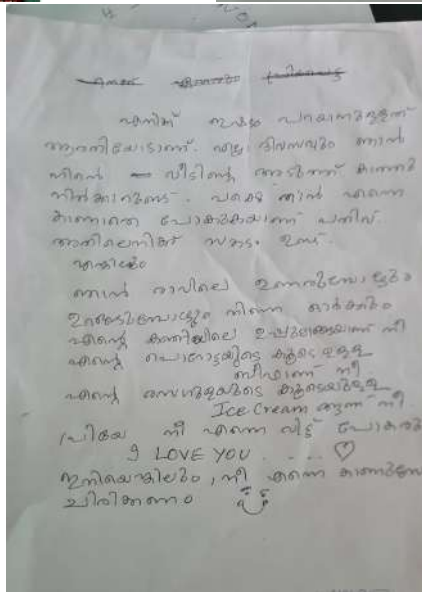 എനിക്ക് ഇഷ്ടം പറയാനുള്ളത്
ആരതിയോടാണ്. എല്ലാ ദിവസവും ഞാൻ
നിന്റെ വീടിന്റെ അടുത്ത് കാത്തു
നിൽക്കാറുണ്ട്. പക്ഷെ നീ എന്നെ
കാണാതെ പോകുകയാണ് പതിവ്.
അതിലെനിക്ക് സങ്കടം ഉണ്ട്.
എങ്കിലും
ഞാൻ രാവിലെ ഉണരുമ്പോളും
ഉറങ്ങുമ്പോളും നിന്നെ ഓർക്കും
എന്റെ കഞ്ഞിയിലെ ഉപ്പുകല്ലാണ് നീ
എന്റെ പൊറോട്ടയുടെ കൂടെ ഉള്ള
ബീഫാണ് നീ
എന്റെ മസാലയുടെ കൂടെയുള്ള
Ice Cream ആണ് നീ
പ്രിയേ നീ എന്നെ വിട്ട് പോകരുത്
I LOVE YOU ... ♡
ഇനിയെങ്കിലും, നീ എന്നെ കാണുമ്പോ
ചിരിക്കണം